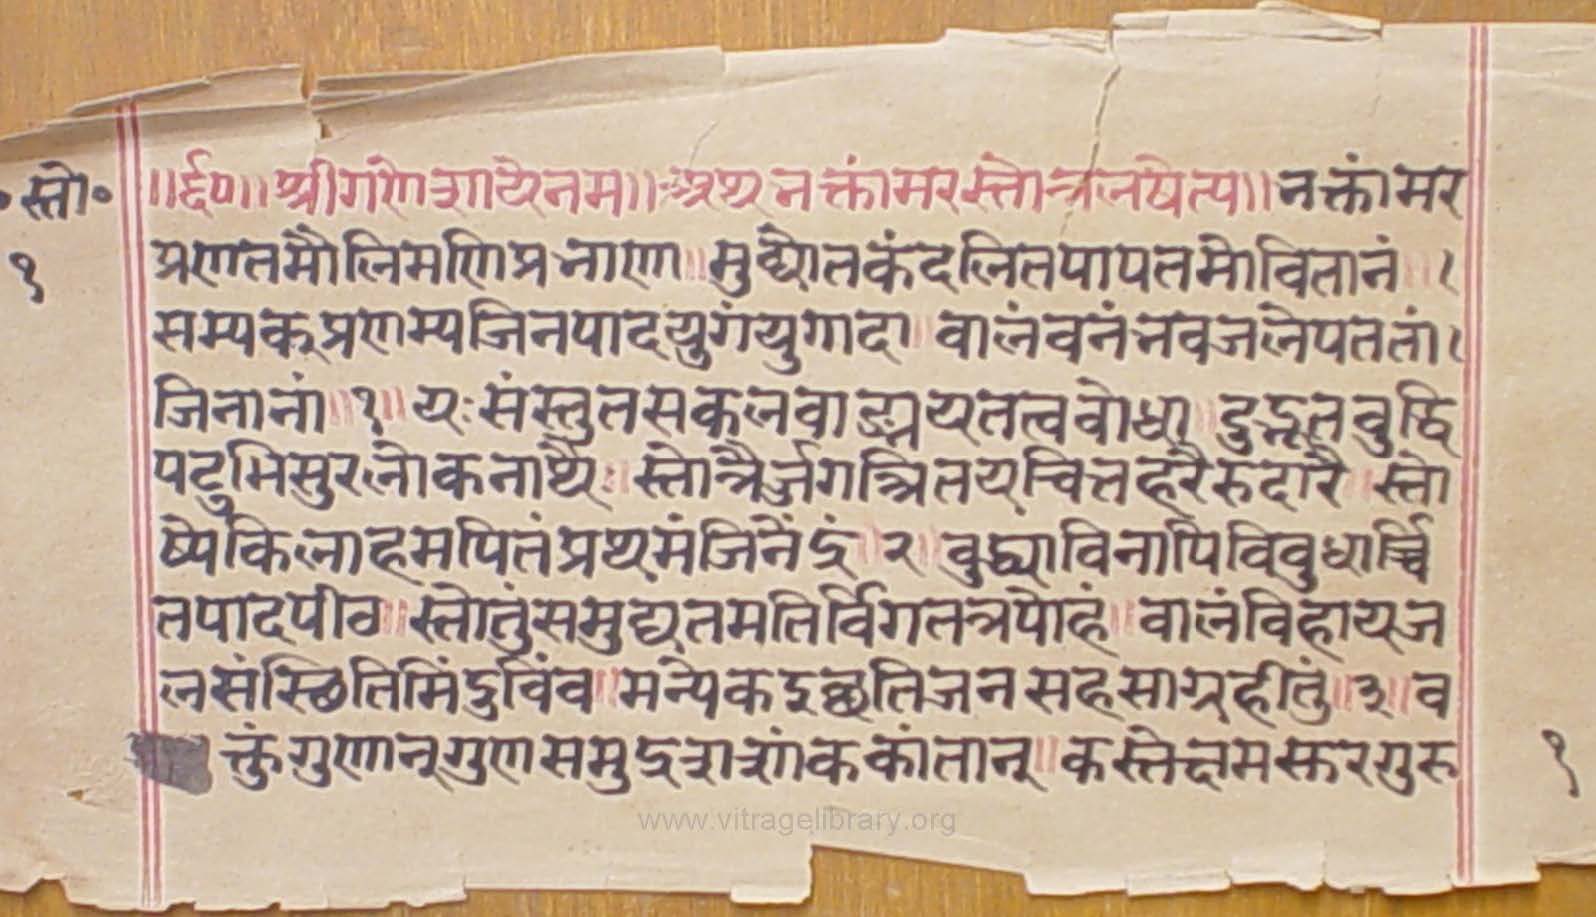 ॰स्तो॰ ॥र्द०॥ श्रीगणेशायैनम॥ अथ भक्तांमरस्तोत्रलषेत्य॥ भक्तांमर
१ प्रणतमौलिमणिप्रभाणा॥ मुद्योतकंदलितपापतमोवितानं॥।
सम्यक्प्रणम्यजिनपादयुगंयुगादा॥ वालंवनंभवजलेपततां।
जिनानां॥१॥ यःसंस्तुतसकलवाङ्मयतत्ववोधा॥ दुद्भूतवुद्धि
पटुभिसुरलोकनाथैः॥ स्तोत्रैर्जगत्रितयचित्तहरैरुदारै॥ स्तो
ष्येकिलाहमपितंप्रथमंजिनेंद्रं॥२॥ वुद्ध्याविनापिविवुधार्च्चि
तपादपीठ॥ स्तोतुंसमुद्यतमतिर्विगतत्रपोहं॥ वालंविहायज
लसंस्थितिमिंदुविंव॥ मन्येकइछतिजनसहसाग्रहीतुं॥३॥ व
क्तुंगुणान्गुणसमुद्रशशांककांतान्॥ कस्तेक्षमसक्तरगुरु १
www.vitragelibrary.org